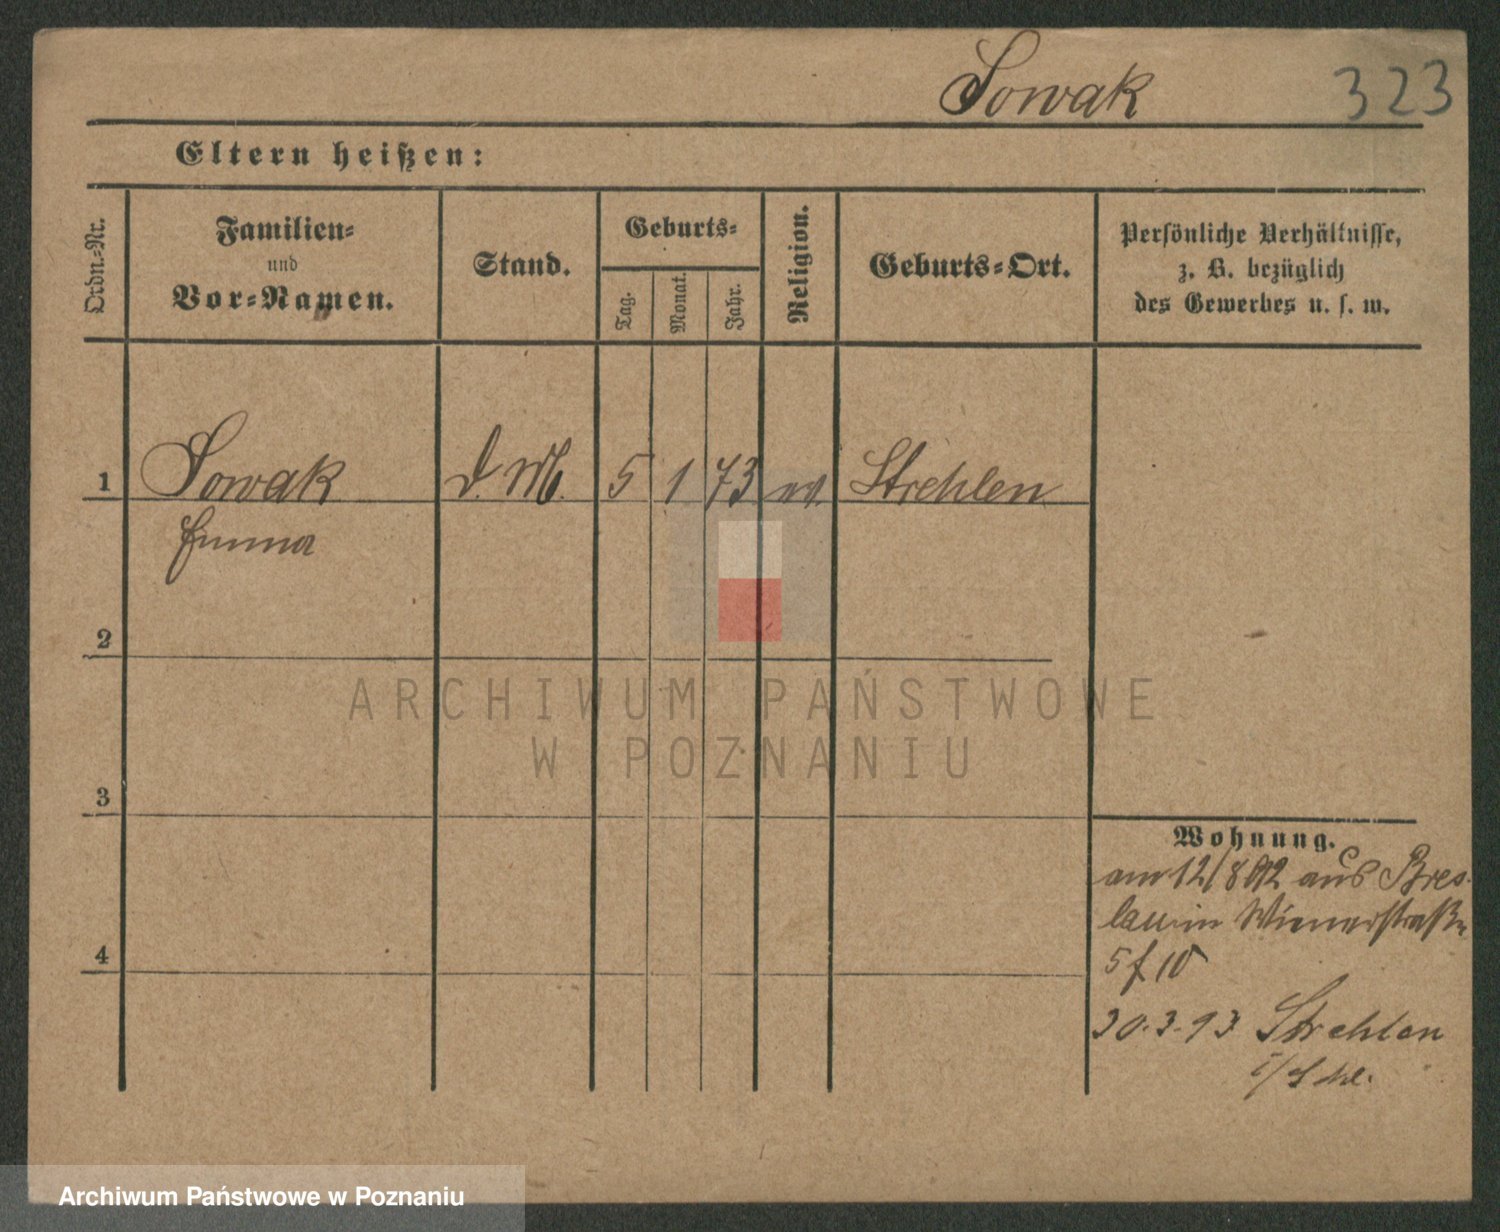 Sowak 323
Eltern heißen:
Ordn.-Nr.
Familien-
und
Vor-Namen.
Stand.
Geburts-
Tag.
Monat.
Jahr.
Religion.
Geburts-Ort.
Persönliche Verhältnisse,
z. B. bezüglich
des Gewerbes u. s. w.
1 Sowak d. M. 5 1 73 ev. Strehlen
Emma
2
3
4
Wohnung.
am 12/8 92 aus Bres-
lau in Wienerstraße
5 f 10
30.3.93 Strehlen
i/Schl.
ARCHIWUM PAŃSTWOWE
W POZNANIU
Archiwum Państwowe w Poznaniu